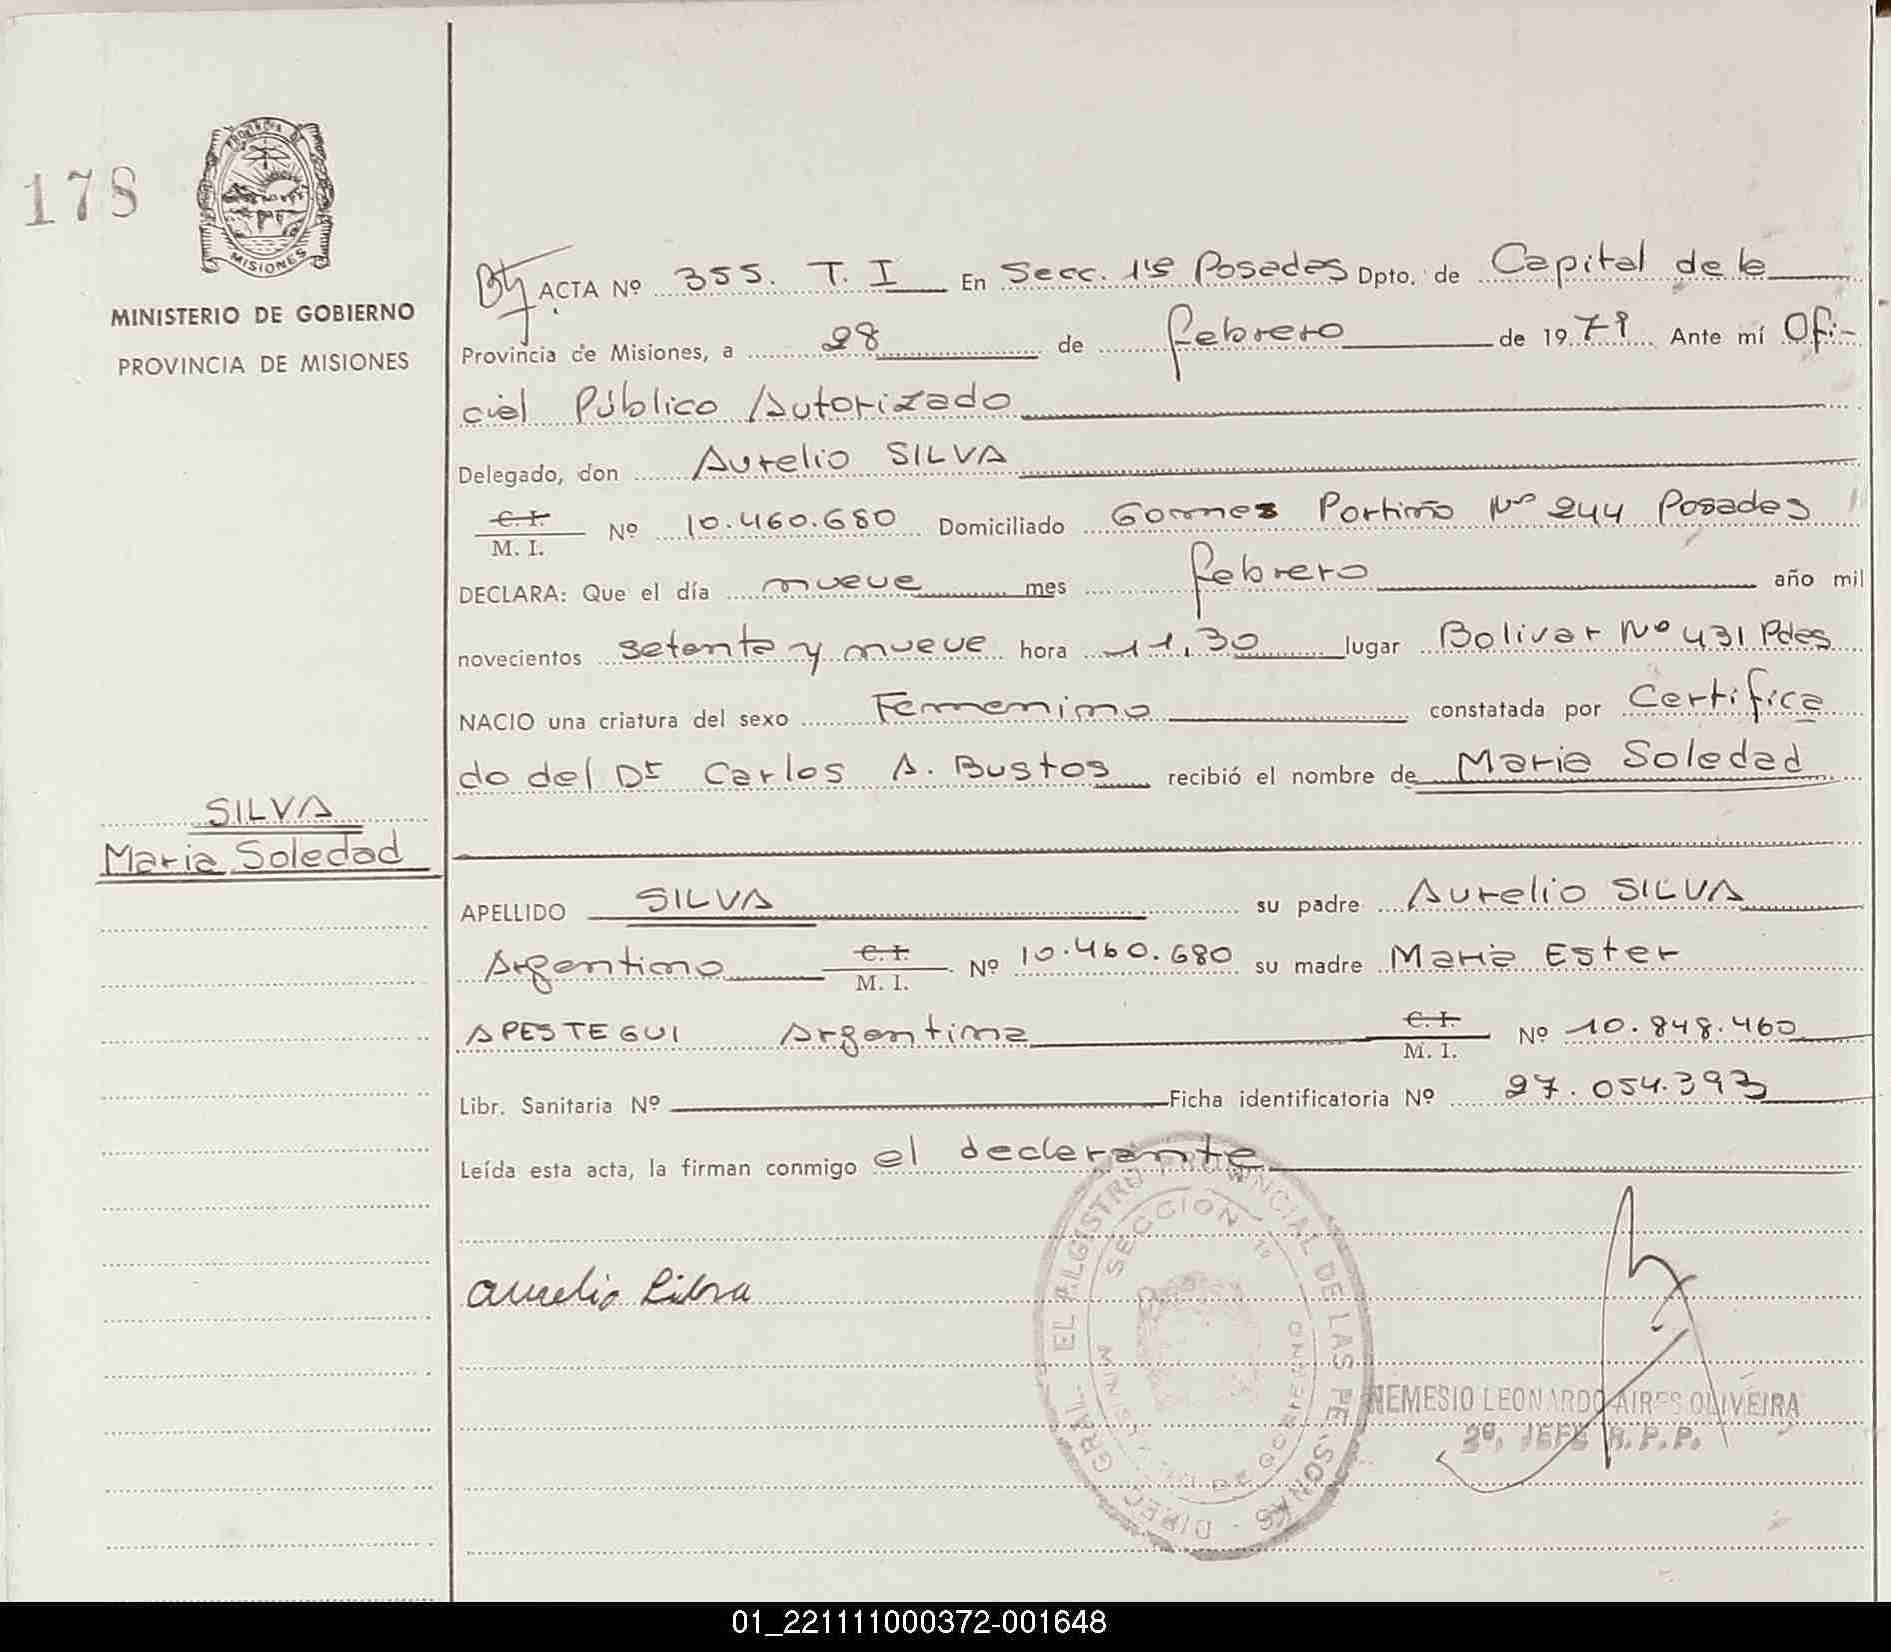 178
PROVINCIA DE
MISIONES
MINISTERIO DE GOBIERNO
PROVINCIA DE MISIONES
SILVA
Maria Soledad
ACTA Nº 355. T. I En Secc. 1ra Posadas Dpto. de Capital de la
Provincia de Misiones, a 28 de febrero de 1979 Ante mí Ofi-
cial Público Autorizado
Delegado, don Aurelio SILVA
C. I.
M. I. Nº 10.460.680 Domiciliado Gomes Portiño Nº 244 Posadas
DECLARA: Que el día nueve mes febrero año mil
novecientos setenta y nueve hora 11,30 lugar Bolivar Nº 431 Pdas
NACIO una criatura del sexo Femenino constatada por Certifica
do del Dr Carlos A. Bustos recibió el nombre de Maria Soledad
APELLIDO SILVA su padre Aurelio SILVA
Argentino C. I.
M. I. Nº 10.460.680 su madre Maria Ester
APESTEGUI Argentina C. I.
M. I. Nº 10.848.460
Libr. Sanitaria Nº Ficha identificatoria Nº 27.054.393
Leída esta acta, la firman conmigo el declarante
Aurelio Silva
SECCION 1a
DE LAS PERSONAS
NEMESIO LEONARDO AIRES OLIVEIRA
2º. JEFE R.P.P.
01_221111000372-001648